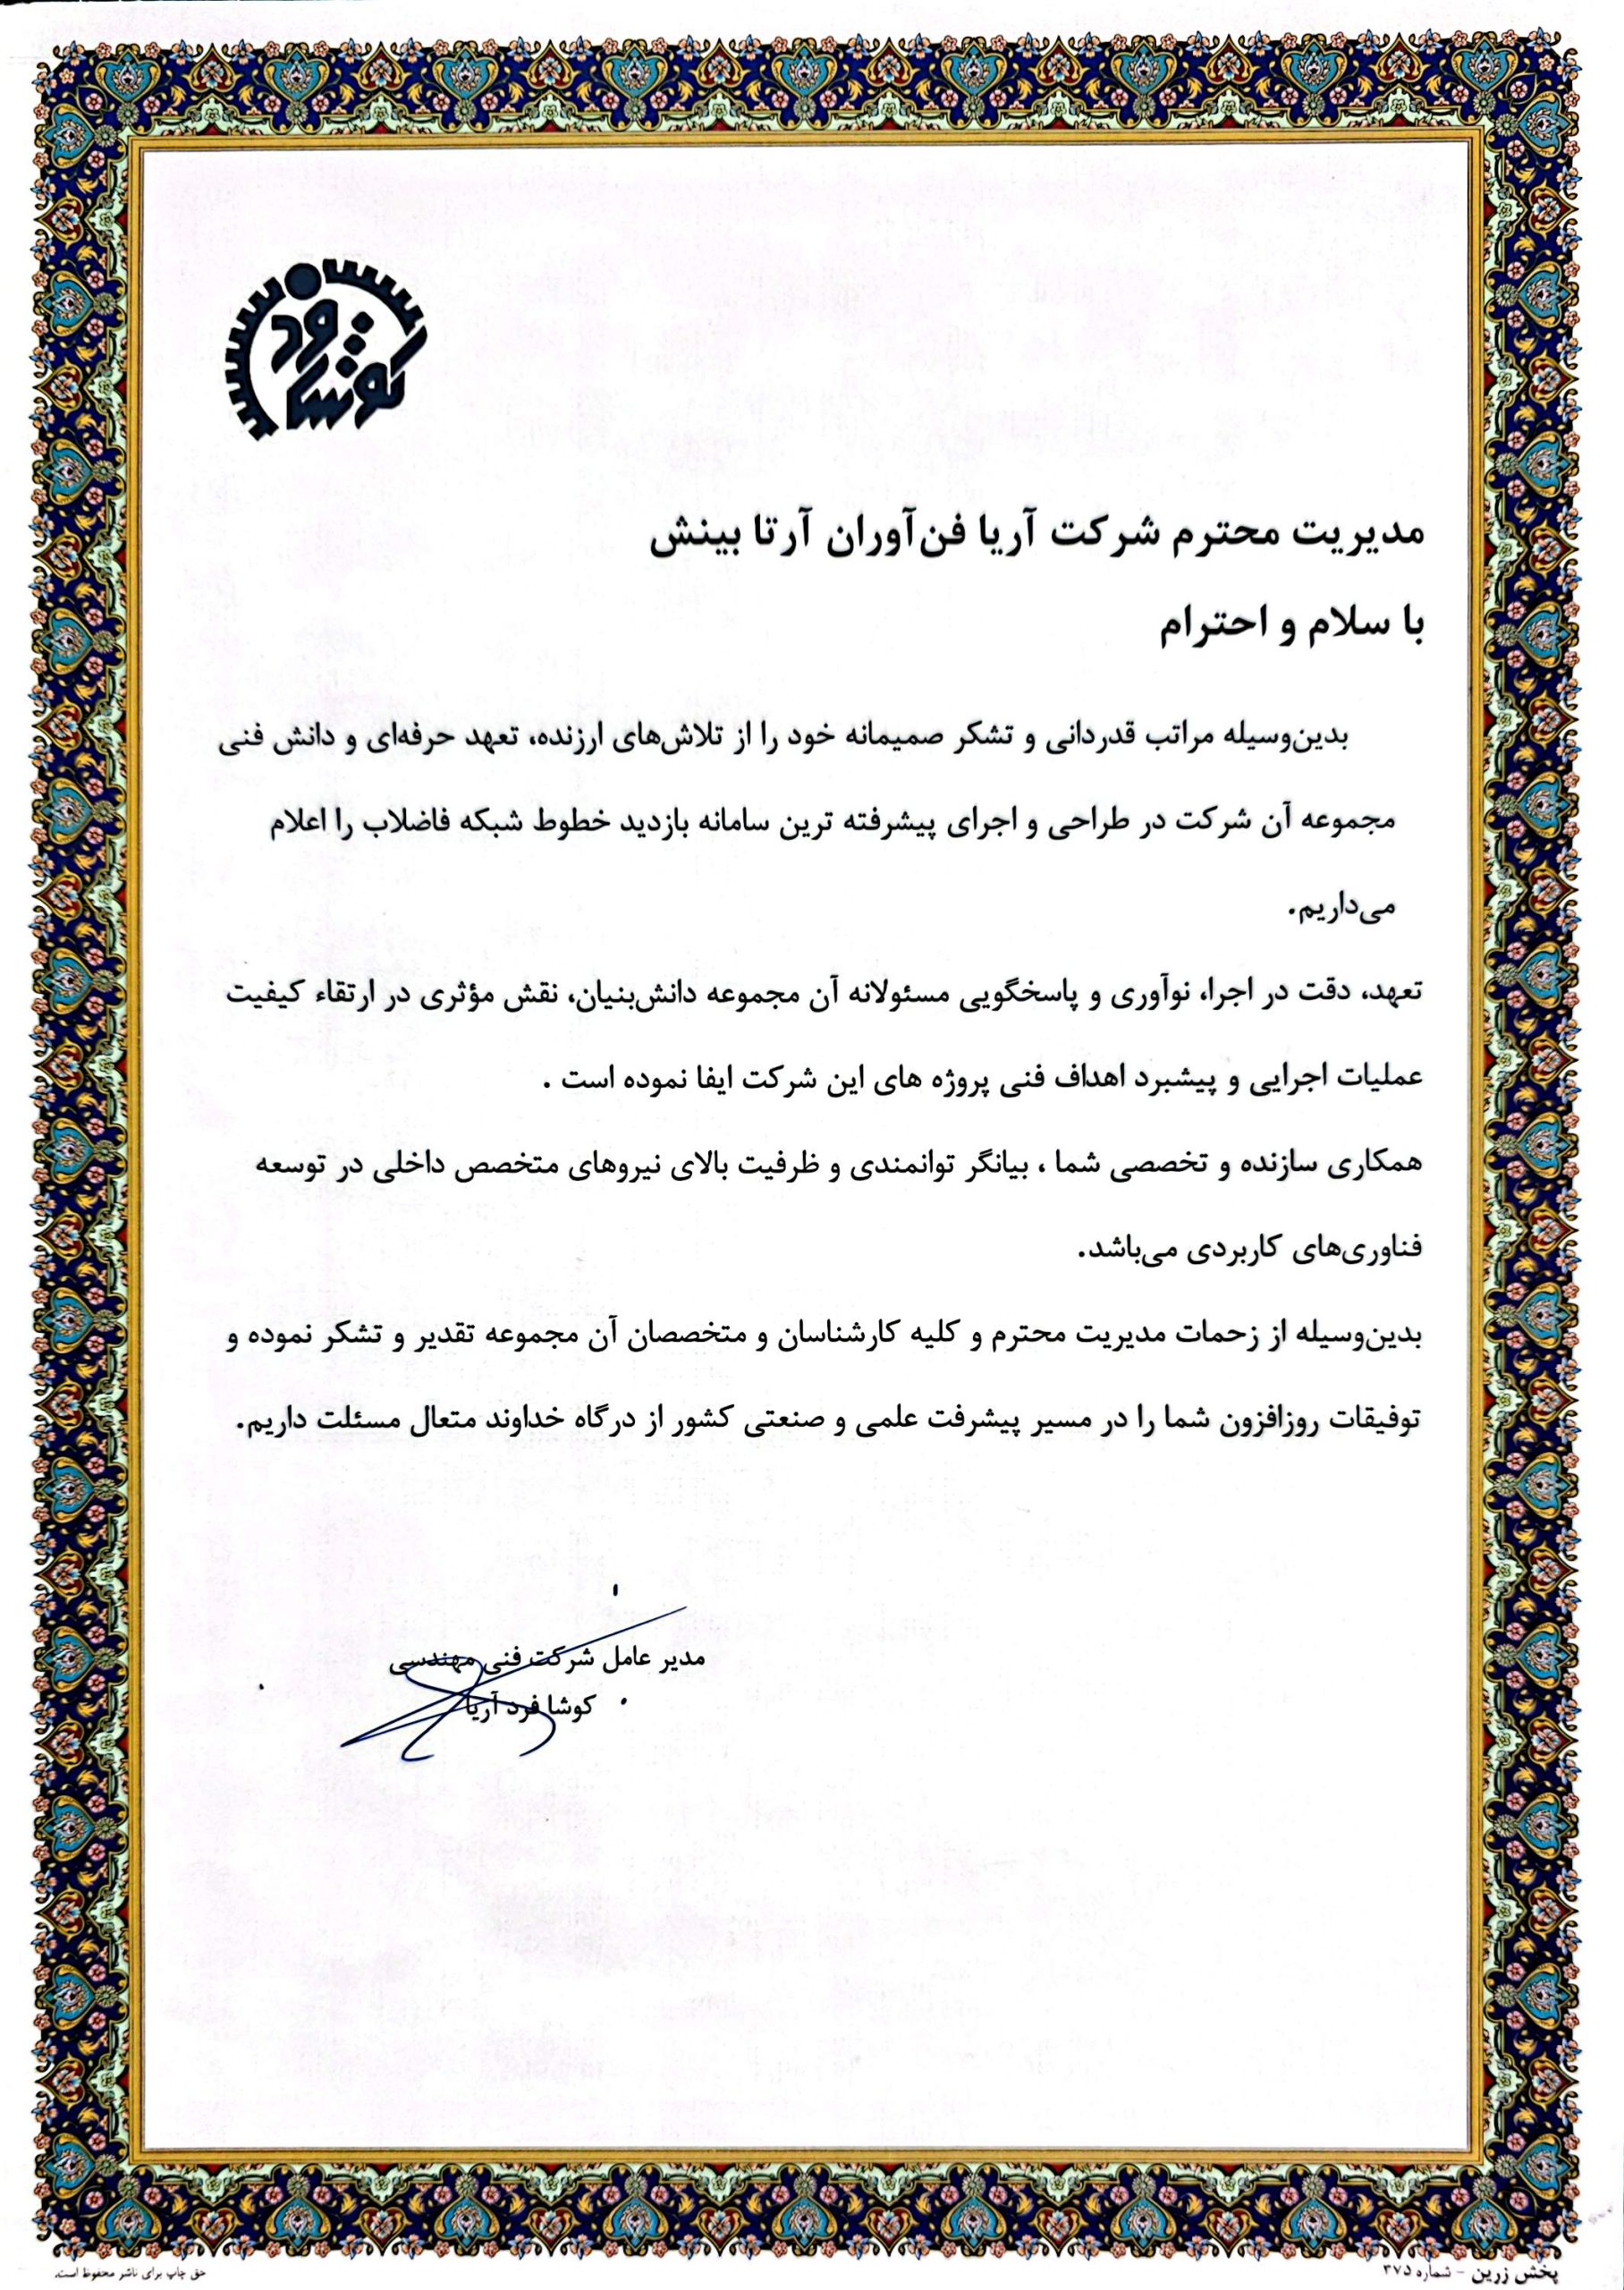 کوشا فرد
مدیریت محترم شرکت آریا فن‌آوران آرتا بینش
با سلام و احترام
بدین‌وسیله مراتب قدردانی و تشکر صمیمانه خود را از تلاش‌های ارزنده، تعهد حرفه‌ای و دانش فنی
مجموعه آن شرکت در طراحی و اجرای پیشرفته ترین سامانه بازدید خطوط شبکه فاضلاب را اعلام
می‌داریم.
تعهد، دقت در اجرا، نوآوری و پاسخگویی مسئولانه آن مجموعه دانش‌بنیان، نقش مؤثری در ارتقاء کیفیت
عملیات اجرایی و پیشبرد اهداف فنی پروژه های این شرکت ایفا نموده است .
همکاری سازنده و تخصصی شما ، بیانگر توانمندی و ظرفیت بالای نیروهای متخصص داخلی در توسعه
فناوری‌های کاربردی می‌باشد.
بدین‌وسیله از زحمات مدیریت محترم و کلیه کارشناسان و متخصصان آن مجموعه تقدیر و تشکر نموده و
توفیقات روزافزون شما را در مسیر پیشرفت علمی و صنعتی کشور از درگاه خداوند متعال مسئلت داریم.
مدیر عامل شرکت فنی مهندسی
کوشا فرد آریا
پخش زرین - شماره ۳۷۵
حق چاپ برای ناشر محفوظ است.